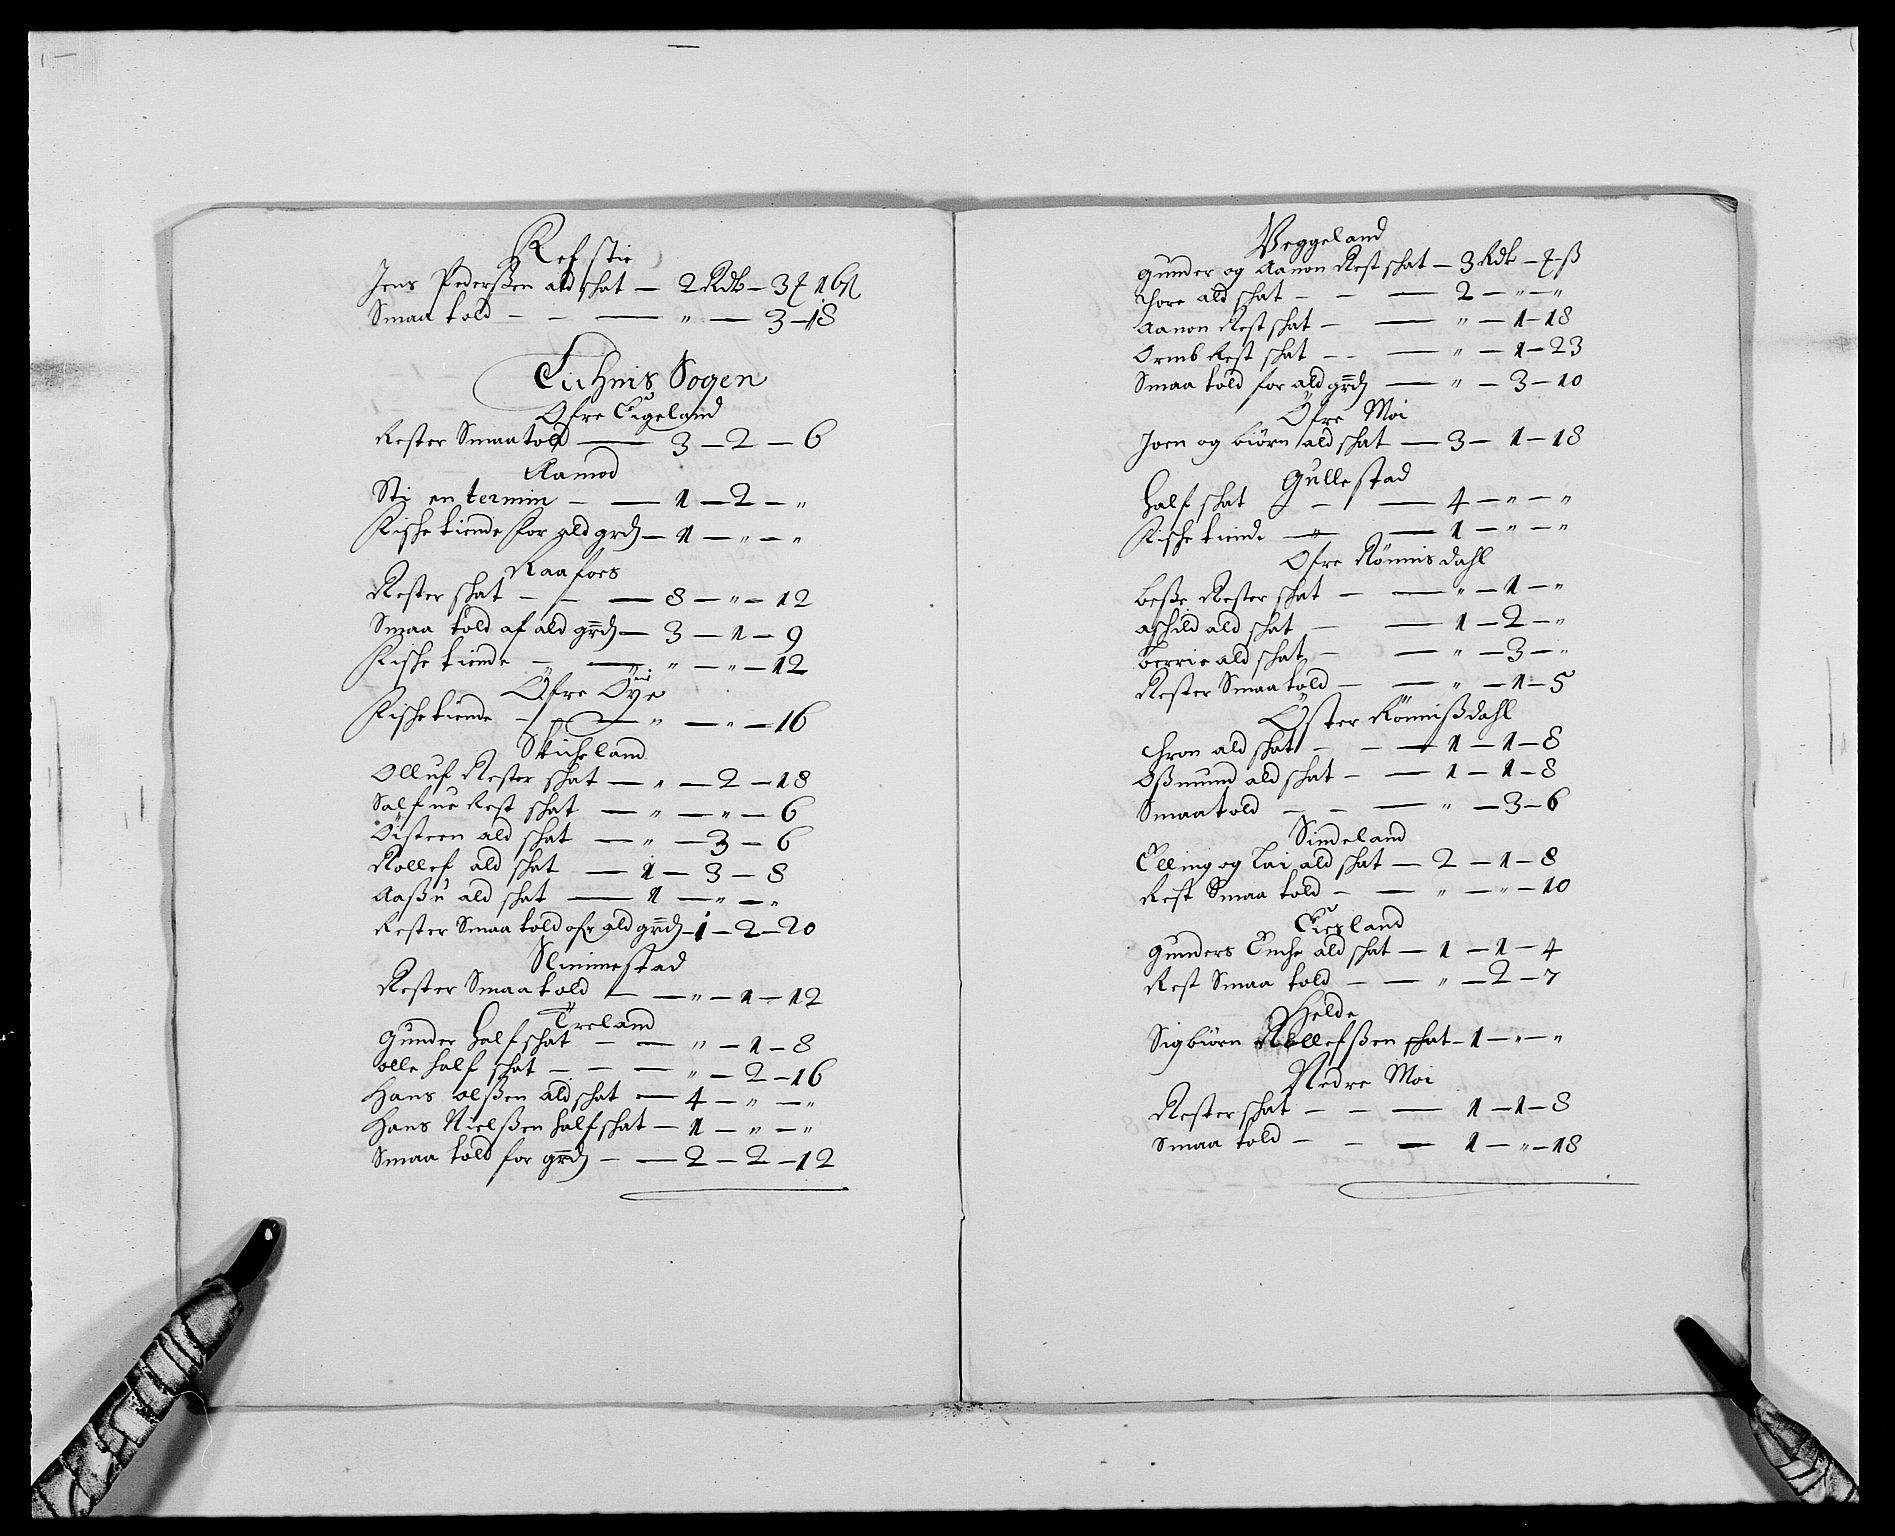 Refstie
Jens Pederßen ald schat — 2 Rdb — 3 ƶ 16 ß
Smaa told — — — „ — 3 — 18
Sogen
Ofre Eigeland
Rester Smaa told — 3 — 2 — 6
Aamod
Sti en termin — — 1 — 2 — „
Fische tiende for ald grd — 1 — „ — „
Raafoes
Rester schat — — — 8 — „ — 12
Smaa told af ald grd — 3 — 1 — 9
Fische tiende — — „ — „ — 12
Öfre Öye
Fische tiende — — „ — „ — 16
Sticheland
Olluf Rester schat — „ — 2 — 18
Salfue Rest schat — „ — „ — 6
Öisteen ald schat — „ — 3 — 6
Rollef ald schat — 1 — 3 — 8
Aaßu ald schat — 1 — „ — „
Rester Smaa told ald grd — 1 — 2 — 20
Slimmestad
Rester Smaa told — — „ — 1 — 12
Treland
Gunder half schat — — „ — 1 — 8
olle half schat — — — „ — 2 — 16
Hans olßen ald schat — 4 — „ — „
Hans Nielßen half schat — 1 — „ — „
Smaa told for grd — — 2 — 2 — 12
Veggeland
Gunder og Aanon Rest schat — 3 Rdb — ƶ — ß
Thore ald schat — — — 2 — „ — „
Aanon Rest schat — — „ — 1 — 18
Ormb Rest schat — — — „ — 1 — 23
Smaa told for ald grd — „ — 3 — 10
Öfre Moi
Joen og biörn ald schat — 3 — 1 — 18
Gullestad
Half schat — — 4 — „ — „
Fische tiende — — 1 — „ — „
Ofre Rönnisdahl
Beße Rester schat — — „ — 1 — „
aschild ald schat — — 1 — 2 — „
berrie ald schat — — „ — 3 — „
Rester Smaa told — — „ — 1 — 5
Öster Rönnißdahl
Thron ald schat — — — 1 — 1 — 8
Oßmund ald schat — — 1 — 1 — 8
Smaa told — — — „ — 3 — 6
Sindeland
Elling og Lai ald schat — 2 — 1 — 8
Rest Smaa told — — „ — „ — 10
Eiesland
Gunders Enche ald schat — 1 — 1 — 4
Rest Smaa told — — „ — 2 — 7
Helde
Sigbiörn Rollefßen schat — 1 — „ — „
Nedre Moi
Rester schat — — — 1 — 1 — 8
Smaa told — — — 1 — „ — 18